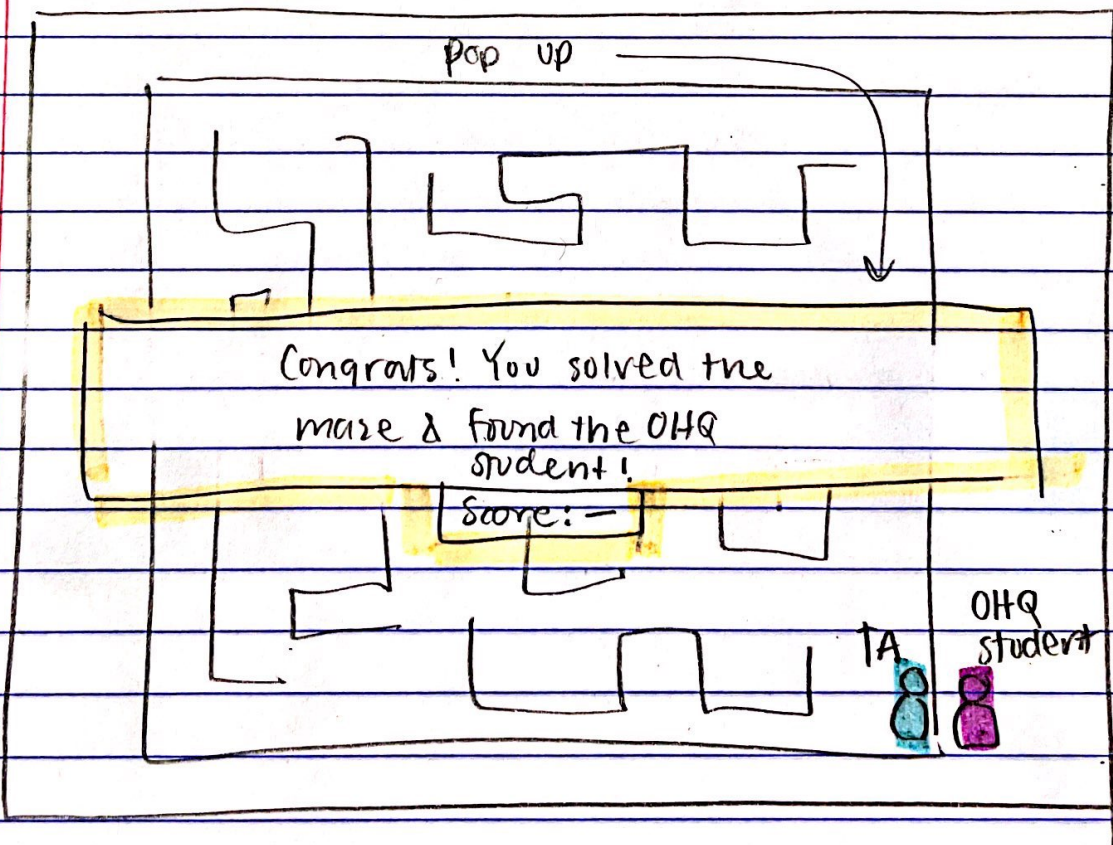 pop up
Congrats! You solved the
maze & found the OHQ
student!
Score: —
TA
OHQ
student